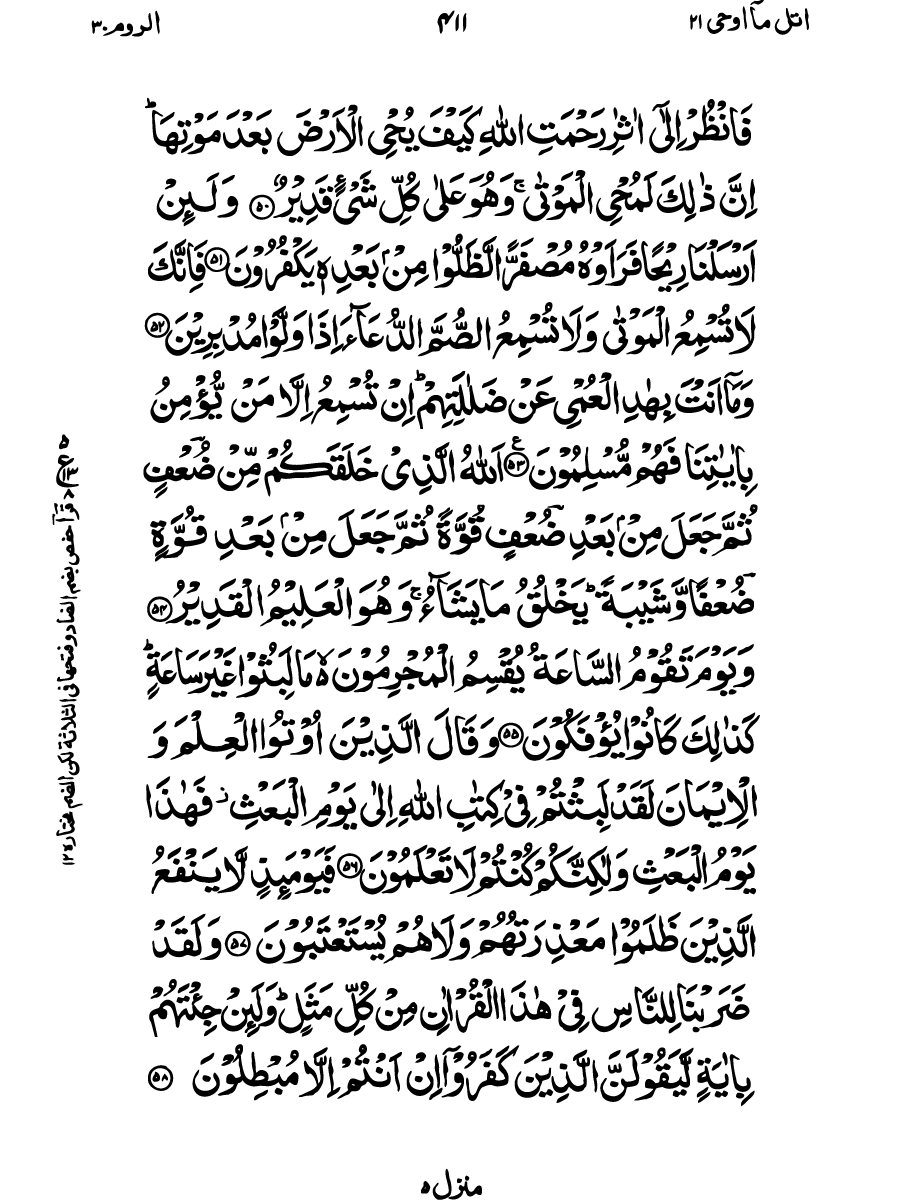 اتل مآ اوحی ۲۱
۴۱۱
الروم ۳۰
فَانْظُرْ اِلٰۤی اٰثٰرِ رَحْمَتِ اللّٰهِ كَیْفَ یُحْیِ الْاَرْضَ بَعْدَ مَوْتِهَا ؕ
اِنَّ ذٰلِكَ لَمُحْیِ الْمَوْتٰی ۚ وَهُوَ عَلٰی كُلِّ شَیْءٍ قَدِیْرٌ ۝۵۰ وَلَىِٕنْ
اَرْسَلْنَا رِیْحًا فَرَاَوْهُ مُصْفَرًّا لَّظَلُّوْا مِنْۢ بَعْدِهٖ یَكْفُرُوْنَ ۝۵۱ فَاِنَّكَ
لَا تُسْمِعُ الْمَوْتٰی وَلَا تُسْمِعُ الصُّمَّ الدُّعَآءَ اِذَا وَلَّوْا مُدْبِرِیْنَ ۝۵۲
وَمَاۤ اَنْتَ بِهٰدِ الْعُمْیِ عَنْ ضَلٰلَتِهِمْ ؕ اِنْ تُسْمِعُ اِلَّا مَنْ یُّؤْمِنُ
بِاٰیٰتِنَا فَهُمْ مُّسْلِمُوْنَ ۝۵۳ ع اَللّٰهُ الَّذِیْ خَلَقَكُمْ مِّنْ ضُؔعْفٍ
ثُمَّ جَعَلَ مِنْۢ بَعْدِ ضُؔعْفٍ قُوَّةً ثُمَّ جَعَلَ مِنْۢ بَعْدِ قُوَّةٍ
ضُؔعْفًا وَّشَیْبَةً ؕ یَخْلُقُ مَا یَشَآءُ ۚ وَهُوَ الْعَلِیْمُ الْقَدِیْرُ ۝۵۴
وَیَوْمَ تَقُوْمُ السَّاعَةُ یُقْسِمُ الْمُجْرِمُوْنَ ۙ مَا لَبِثُوْا غَیْرَ سَاعَةٍ ؕ
كَذٰلِكَ كَانُوْا یُؤْفَكُوْنَ ۝۵۵ وَقَالَ الَّذِیْنَ اُوْتُوا الْعِلْمَ وَ
الْاِیْمَانَ لَقَدْ لَبِثْتُمْ فِیْ كِتٰبِ اللّٰهِ اِلٰی یَوْمِ الْبَعْثِ ؗ فَهٰذَا
یَوْمُ الْبَعْثِ وَلٰكِنَّكُمْ كُنْتُمْ لَا تَعْلَمُوْنَ ۝۵۶ فَیَوْمَىِٕذٍ لَّا یَنْفَعُ
الَّذِیْنَ ظَلَمُوْا مَعْذِرَتُهُمْ وَلَا هُمْ یُسْتَعْتَبُوْنَ ۝۵۷ وَلَقَدْ
ضَرَبْنَا لِلنَّاسِ فِیْ هٰذَا الْقُرْاٰنِ مِنْ كُلِّ مَثَلٍ ؕ وَلَىِٕنْ جِئْتَهُمْ
بِاٰیَةٍ لَّیَقُوْلَنَّ الَّذِیْنَ كَفَرُوْۤا اِنْ اَنْتُمْ اِلَّا مُبْطِلُوْنَ ۝۵۸
قرأ حفص بضم الضاد وفتحها فی الثلاثة لكن الضم مختاره ۱۲
منزل ۵